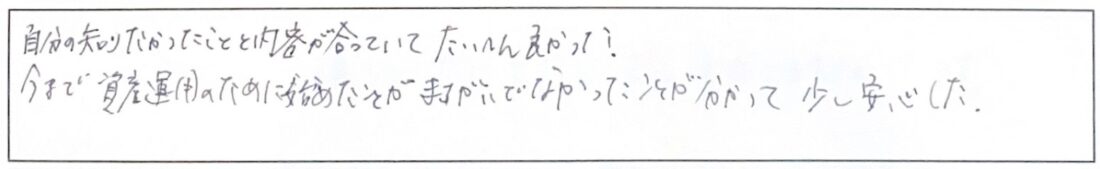 自分の知りたかったことと内容が合っていて たいへん良かった!
今まで資産運用のために始めたことがまちがいでなかったことが分かって 少し安心した.